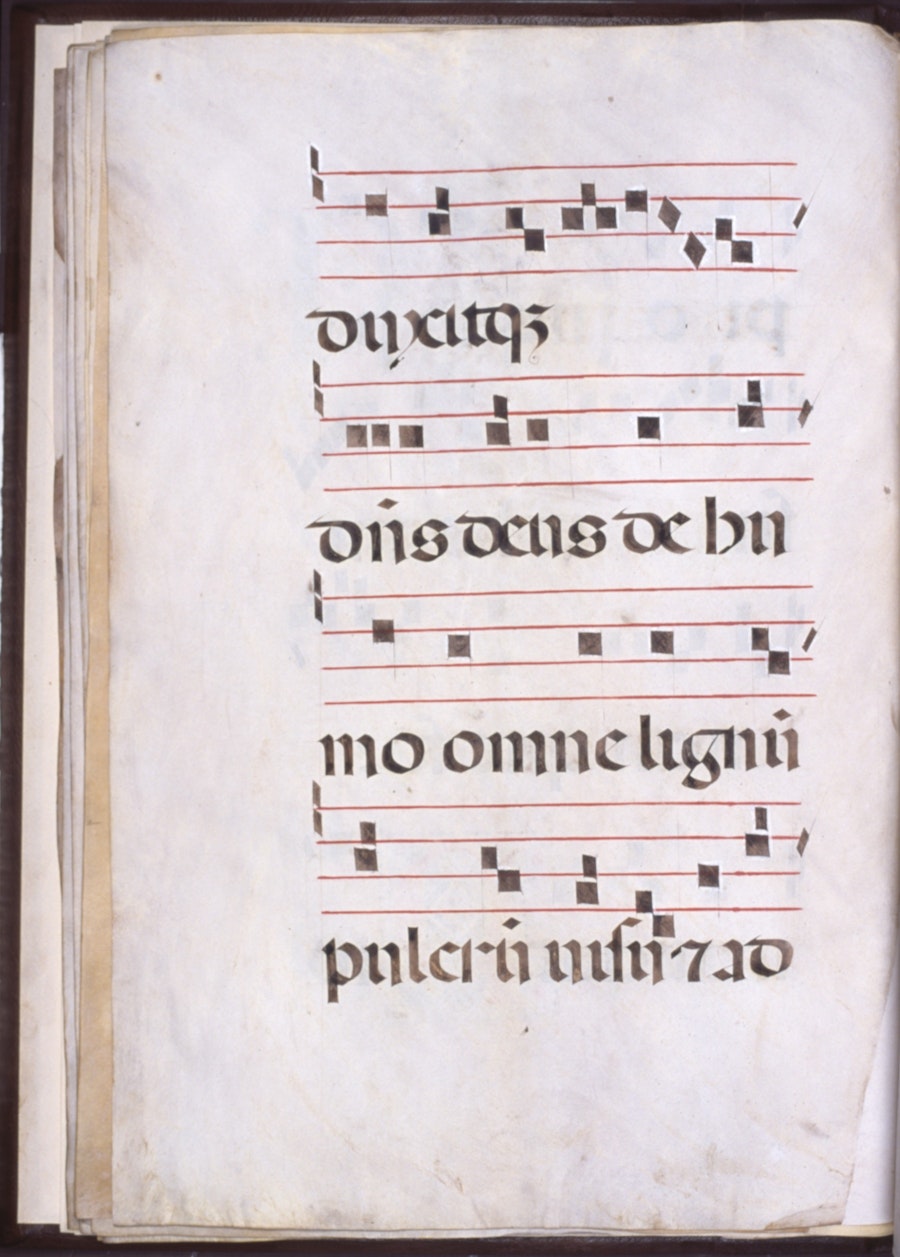 duxitqꝫ
dn̄s deus de hu
mo omne lignū
pulcrū uisu ⁊ ad